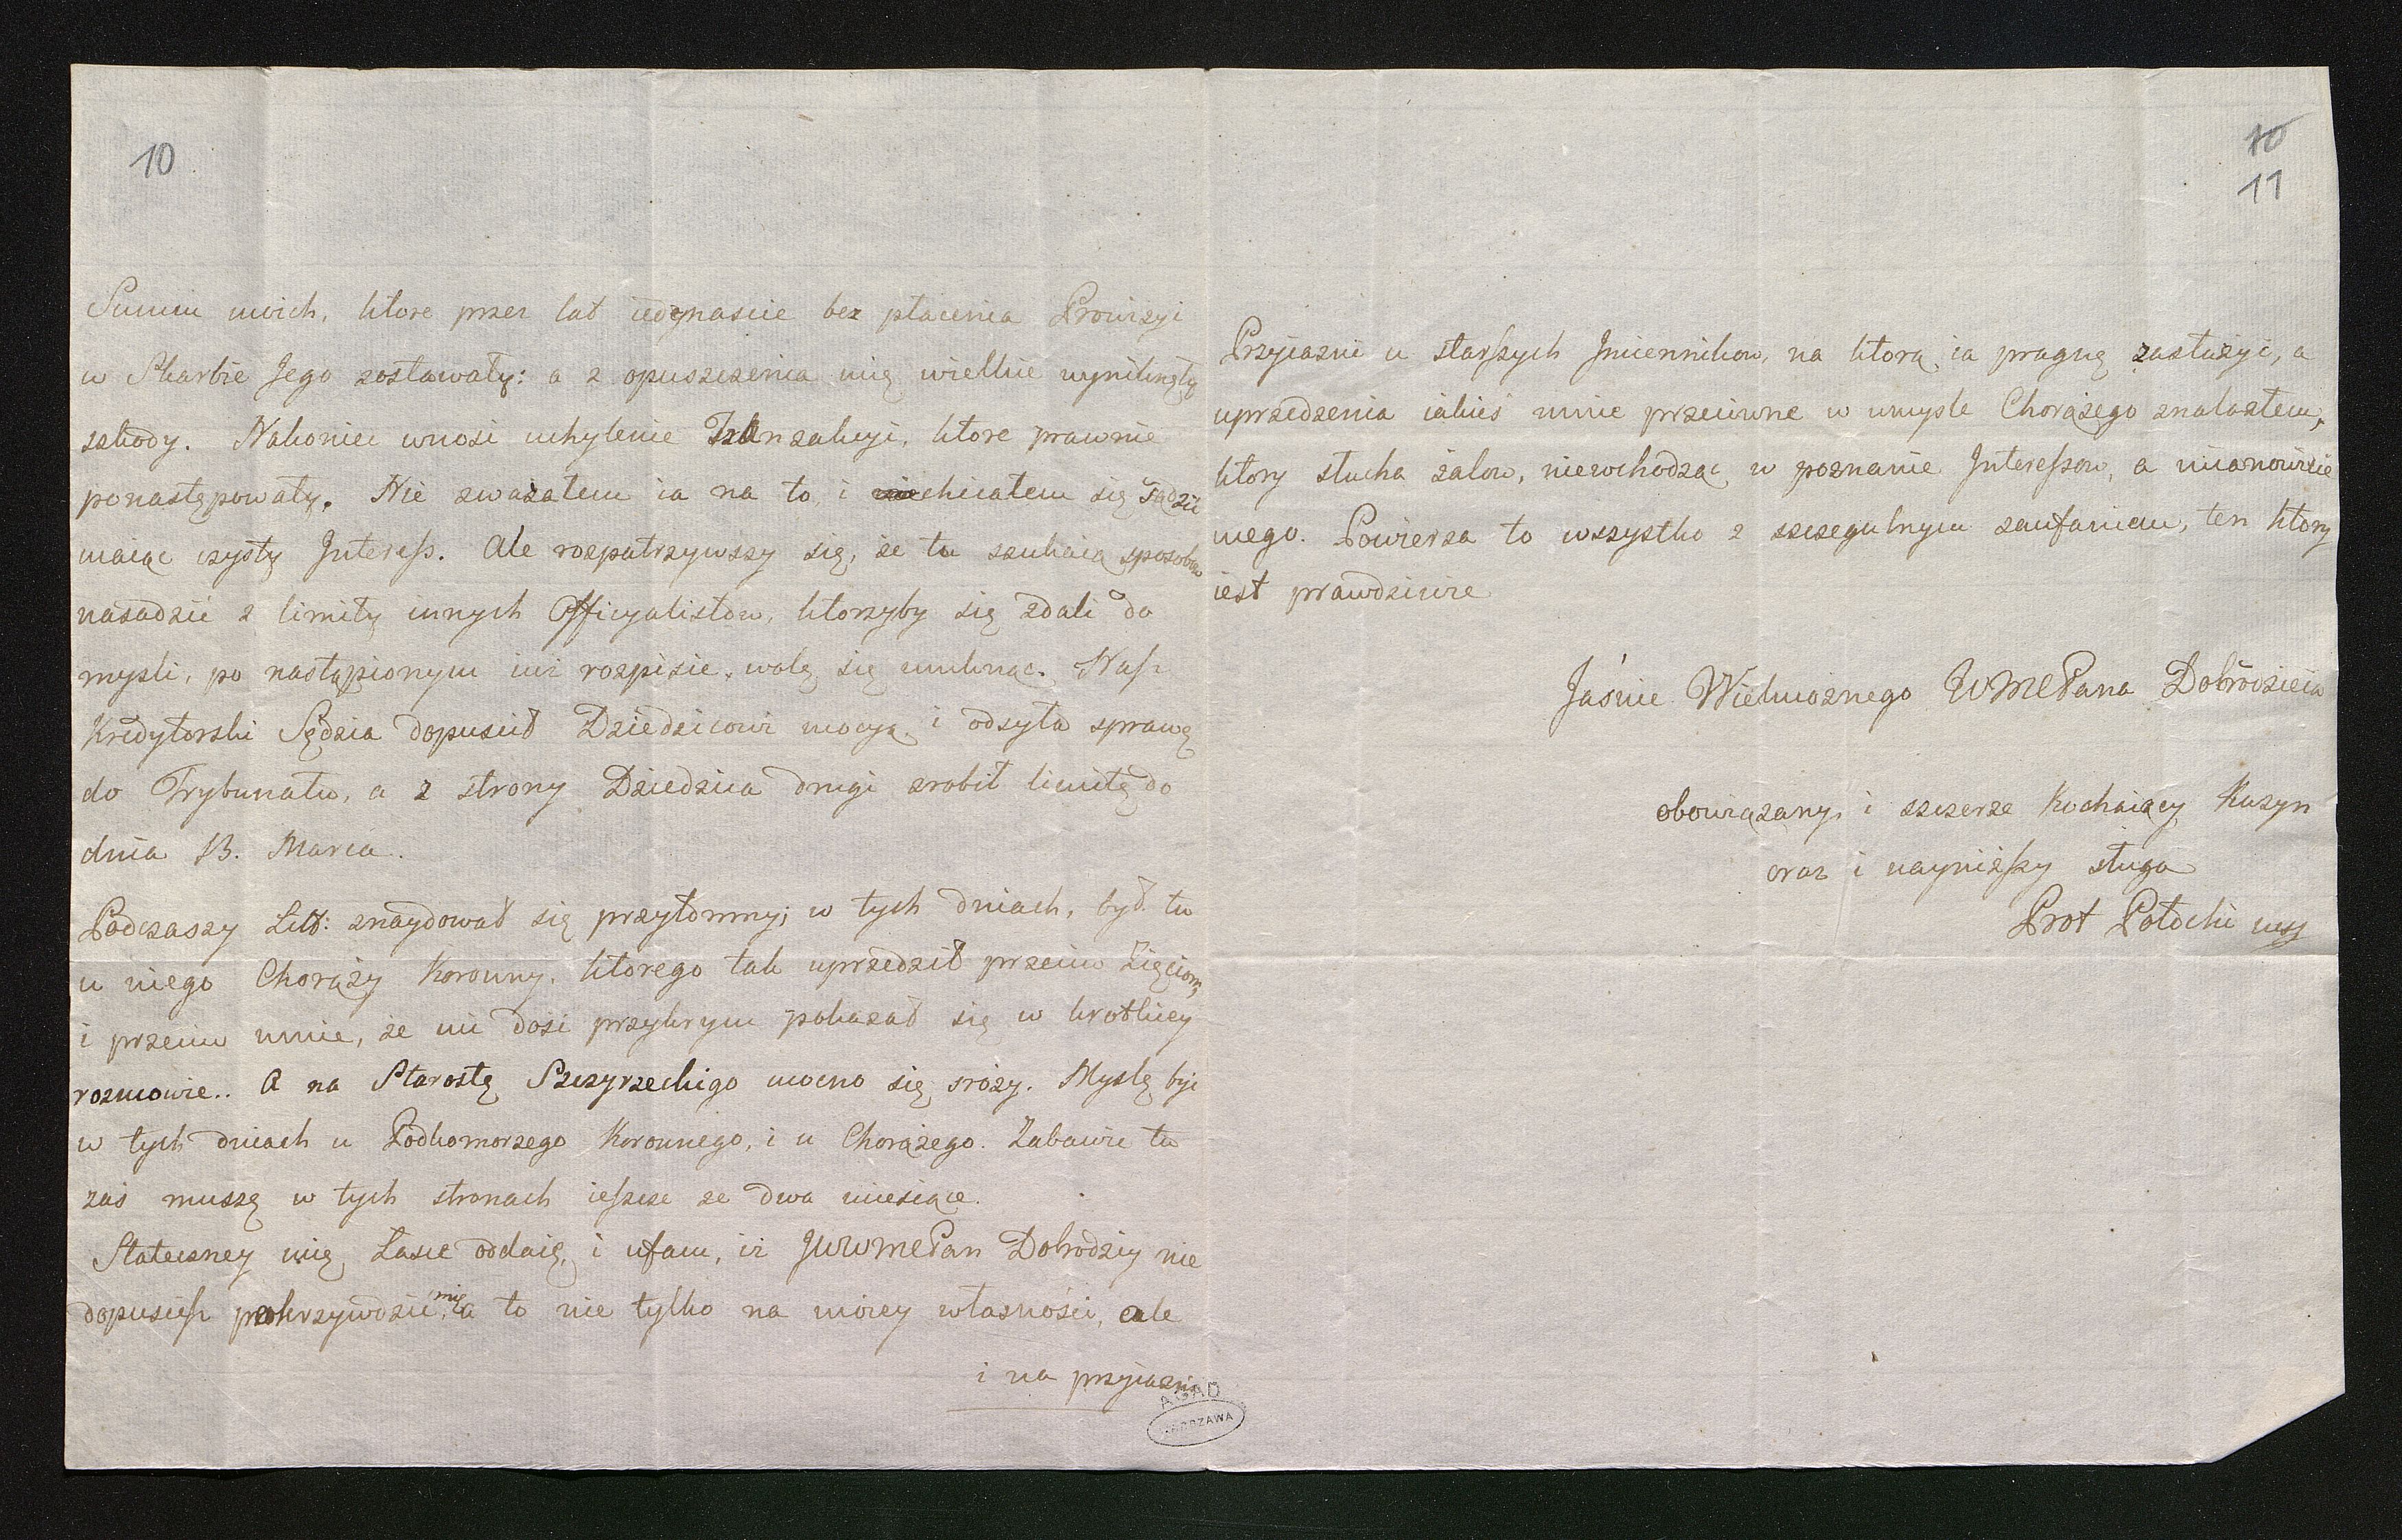 10
Summ moich, ktore przez lat iedynascie bez płacenia Prowizyi
w Skarbie Jego zostawały: a z opuszczenia mię wielkie wyniknęły
szkody. Nakoniec wnosi uchylenie Tranzakcyi, ktore prawnie
ponastępowały. Nie zwazałem ia na to i chciałem się sądzić
maiąc czysty Interess. Ale rozpatrzywszy się, ze tu szukaią sposobow
nasadzić z limity innych Officyalistow, ktorzyby się zdali do
mysli, po nastąpionym iuz rozpisie, wolę się umknąc. Nasz
Kredytorski Sędzia dopuscił Dziedzicowi mocyą i odsyła sprawę
do Trybunału, a z strony Dziedzica drugi zrobił limitę do
dnia 13. Marca.
Podczaszy Litt: znaydował się przytomny; w tych dniach, był tu
u niego Chorąży Koronny, ktorego tak uprzedził przeciw Zięciom,
i przeciw mnie, że mi dosć przykrym pokazał się w krotkiey
rozmowie.. A na Starostę Szczyrzeckigo mocno się sroży. Myslę byc
w tych dniach u Podkomorzego Koronnego, i u Chorążego. Zabawic tu
zaś muszę w tych stronach ieszcze ze dwa miesiące.
Stateczney mię Łasce oddaię, i ufam, iż JWWMCPan Dobrodziey nie
dopuscisz pokrzywdzić mię, a to nie tylko na moiey własności, ale
i na przyiazni
AGAD
WARSZAWA
10
11
Przyiazni u starszych Jmiennikow, na ktorą ia pragnę zasłużyć, a
uprzedzenia iakieś mnie przeciwne w umysle Chorążego znalazłem,
ktory słucha żalow, niewchodząc w poznanie Interessow, a mianowicie
mego. Powierza to wszystko z szczegulnym zaufaniem, ten ktory
iest prawdziwie
Jaśnie Wielmożnego WMCPana Dobrodzieia
obowiązany, i szczerze Kochaiący Kuzyn
oraz i nayniższy sługa
Prot Potocki